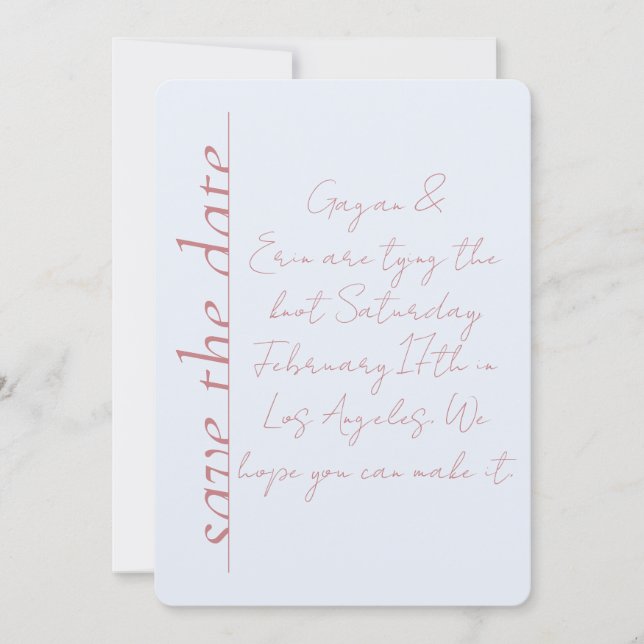 save the date
Gagan &
Erin are tying the
knot Saturday,
February 17th in
Los Angeles. We
hope you can make it.